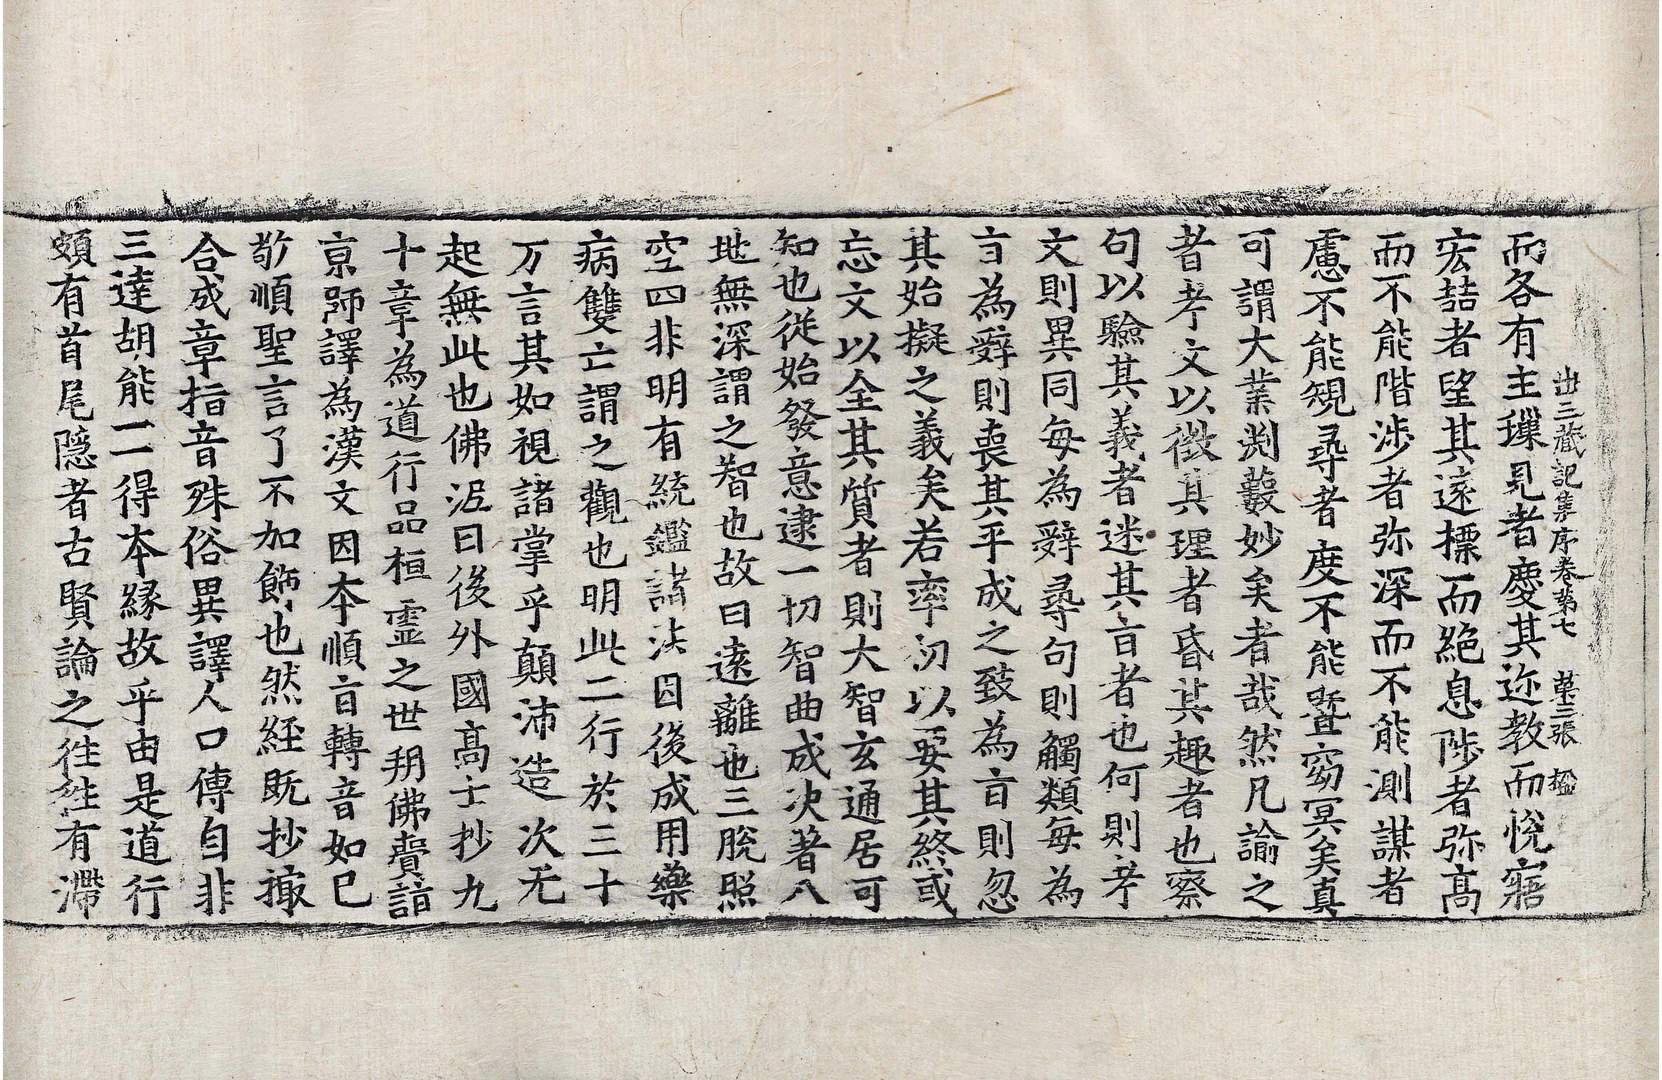 出三藏記集序卷第七　第三張　楹
而各有主璅見者慶其迩教而悅寤
宏喆者望其遠標而絶息陟者弥高
而不能階涉者弥深而不能測謀者
慮不能規尋者度不能暨窈冥矣真
可謂大業渕藪妙矣者哉然凡諭之
者考文以徴其理者昏其趣者也察
句以驗其義者迷其㫖者也何則考
文則異同每為辭尋句則觸類每為
㫖為辭則喪其平成之致為㫖則忽
其始擬之義矣若率初以要其終或
忘文以全其質者則大智玄通居可
知也従始發意逮一切智曲成决著八
地無深謂之智也故曰遠離也三脫照
空四非明有統鑑諸法因後成用藥
病雙亡謂之觀也明此二行於三十
万言其如視諸掌乎顛沛造次无
起無此也佛泥曰後外國高士抄九
十章為道行品桓霊之世朔佛賷詣
京師譯為漢文因本順㫖轉音如巳
敬順聖言了不加飾也然経既抄撮
合成章指音殊俗異譯人口傳自非
三達胡能一一得本縁故乎由是道行
頗有首尾隱者古賢論之往往有滯